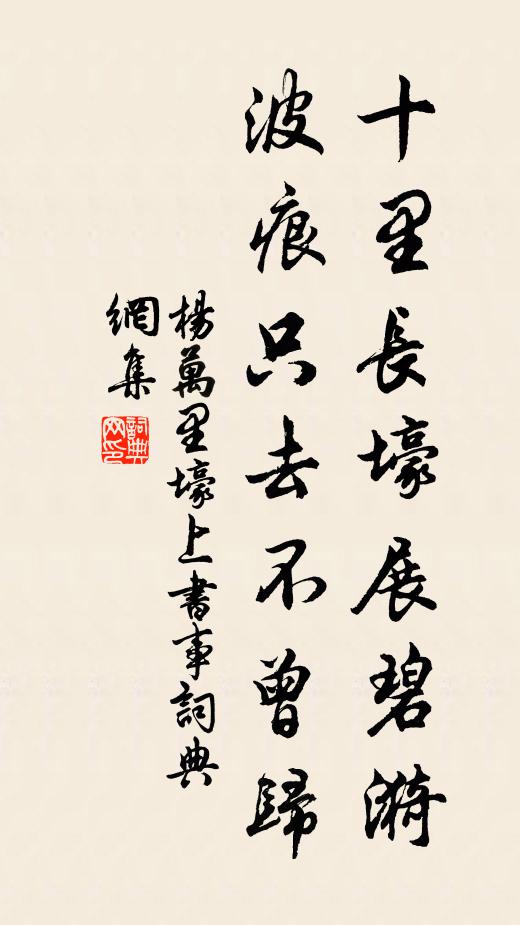 十里長壕展碧漪
波痕只去不曾歸
楊萬里壕上書事詞典
網集
詞典網印